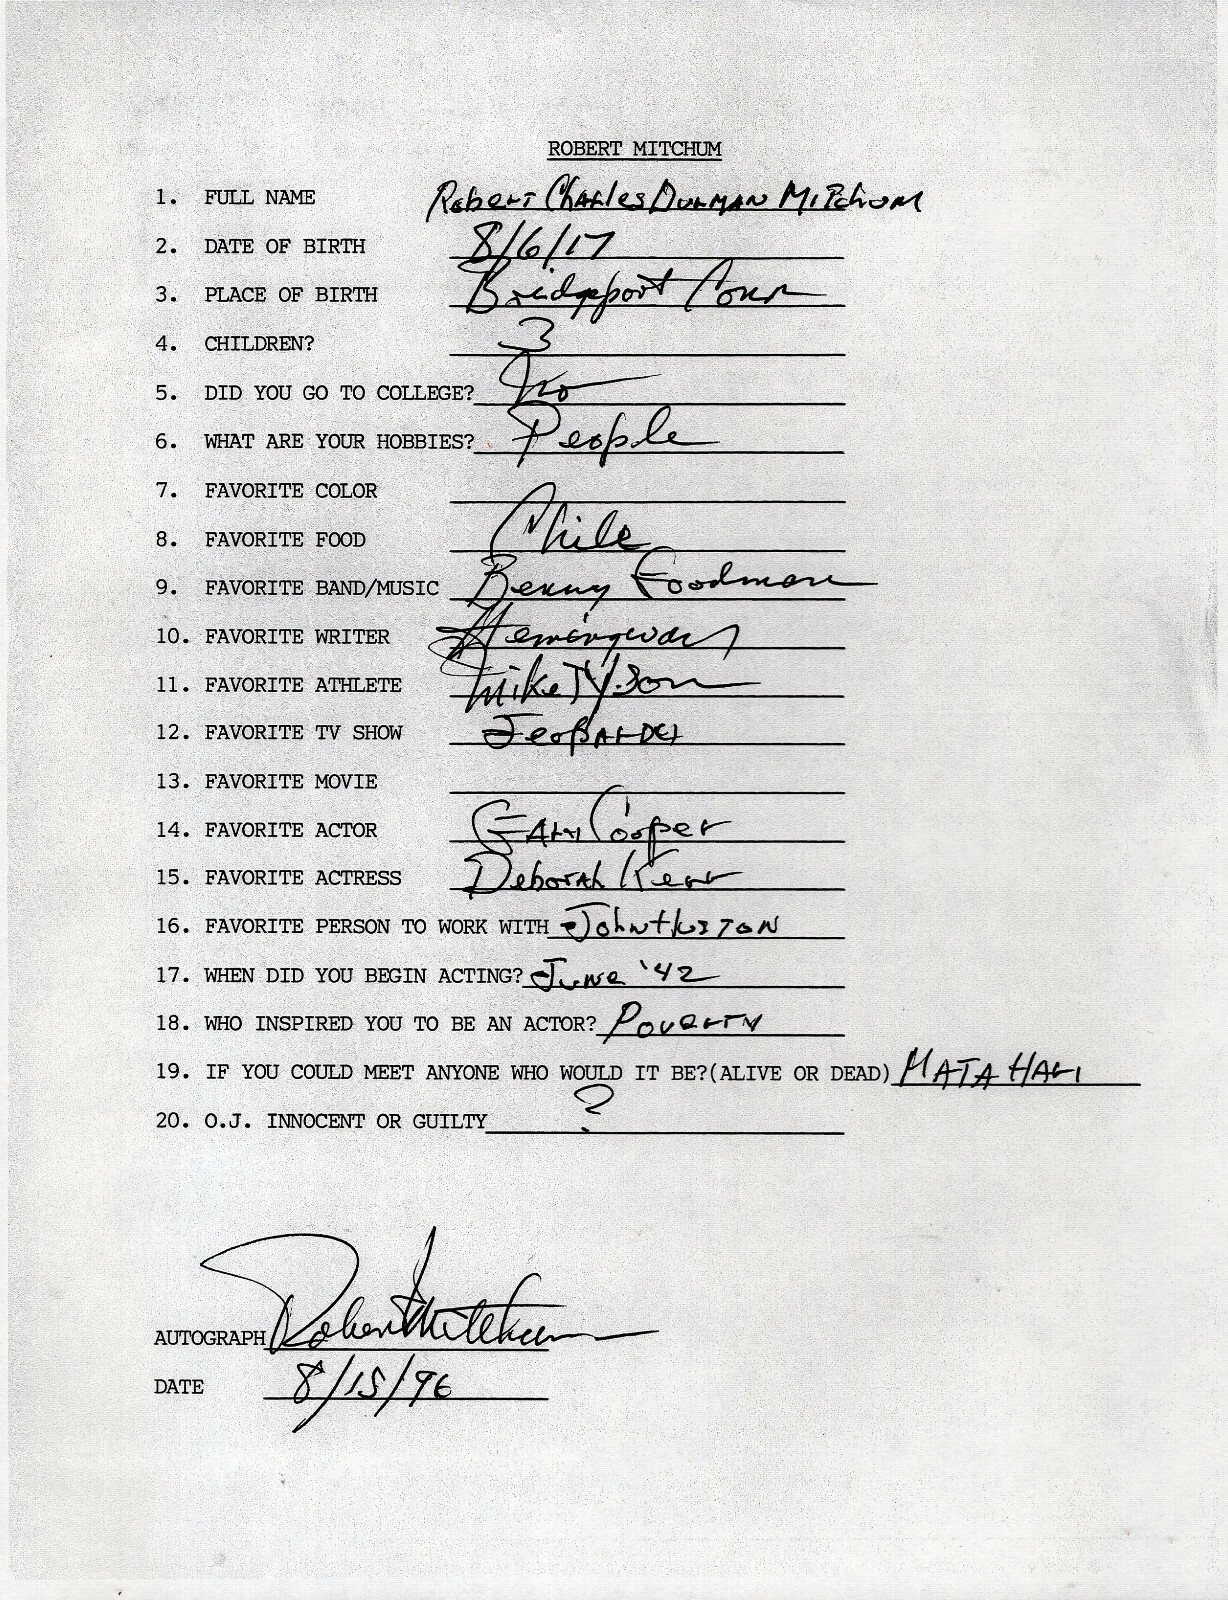 ROBERT MITCHUM
1. FULL NAME Robert Charles Durman Mitchum
2. DATE OF BIRTH 8/6/17
3. PLACE OF BIRTH Bridgeport Conn
4. CHILDREN? 3
5. DID YOU GO TO COLLEGE? No
6. WHAT ARE YOUR HOBBIES? People
7. FAVORITE COLOR
8. FAVORITE FOOD Chile
9. FAVORITE BAND/MUSIC Benny Goodman
10. FAVORITE WRITER Hemingway
11. FAVORITE ATHLETE Mike Tyson
12. FAVORITE TV SHOW Jeopardy
13. FAVORITE MOVIE
14. FAVORITE ACTOR Gary Cooper
15. FAVORITE ACTRESS Deborah Kerr
16. FAVORITE PERSON TO WORK WITH John Huston
17. WHEN DID YOU BEGIN ACTING? June '42
18. WHO INSPIRED YOU TO BE AN ACTOR? POVERTY
19. IF YOU COULD MEET ANYONE WHO WOULD IT BE?(ALIVE OR DEAD) MATA HARI
20. O.J. INNOCENT OR GUILTY ?
AUTOGRAPH Robert Mitchum
DATE 8/15/96